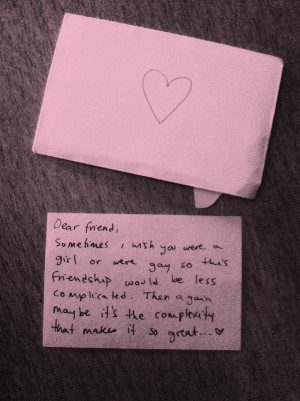 Dear friend,
Sometimes i wish you were a
girl or were gay so this
friendship would be less
complicated. Then again
maybe it's the complexity
that makes it so great...